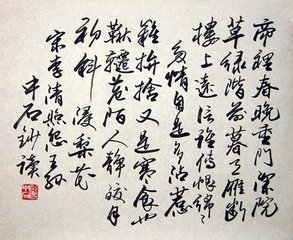 帝裡春晚重門深院
草綠階前暮天雁斷
樓上遠信誰傳恨綿々
多情自是多沾惹
難拚捨又是寒食也
鞦韆巷陌人靜皎月
初斜 浸梨花
宋李清照怨王孫
中石鈔讀